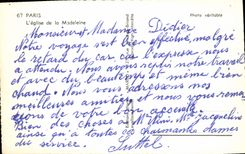 67 PARIS
L'église de la Madeleine
Photo véritable
Monsieur et Madame Didier
Notre voyage est bien effectué, malgré
le retard du car, car l'express nous
a attendu. Nous avons repris notre travail
et avec du beau temps et même bien
chaud. Nous vous adressons nos
meilleures amitiés et nous vous remer
cions de votre bon accueil.
Bien des choses à Mlle Jacqueline
ainsi qu'à toutes ces charmantes dames
du service.